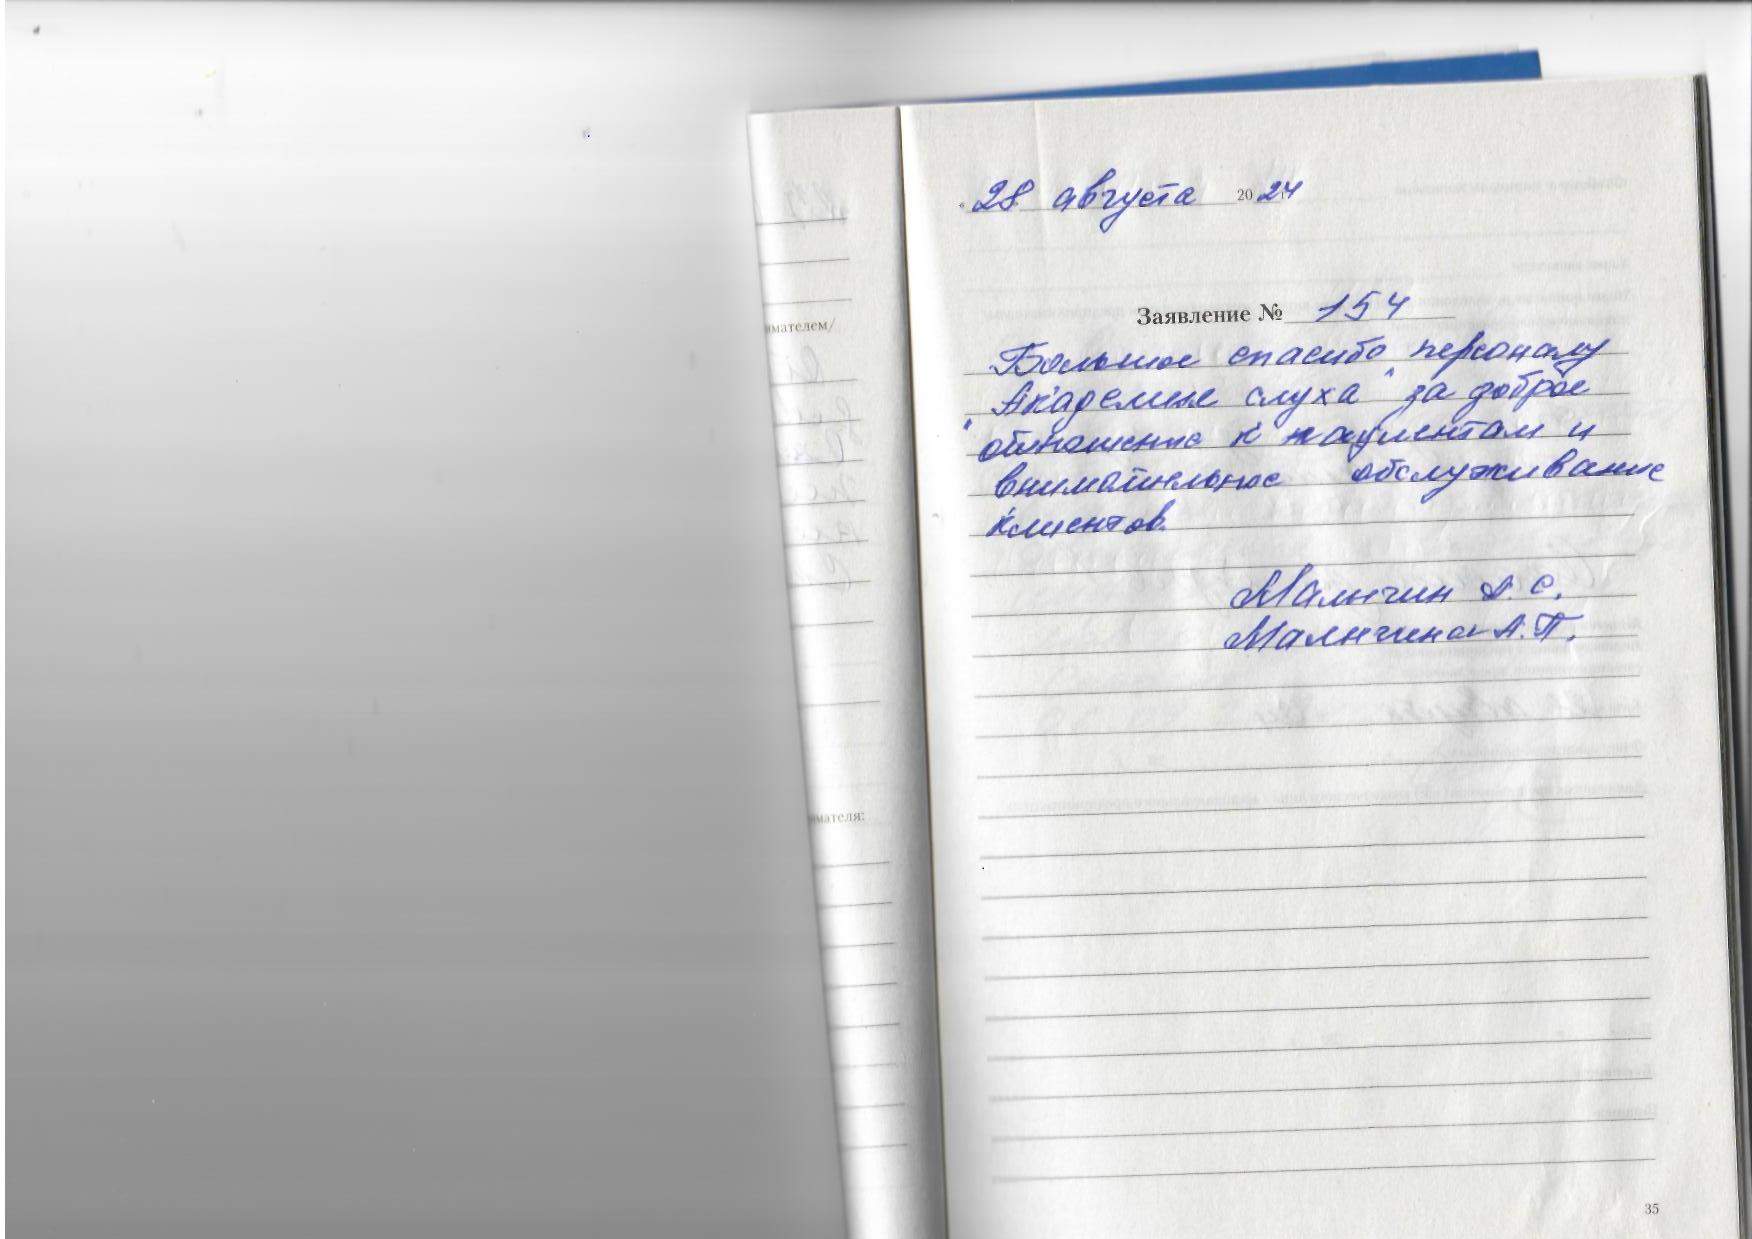 28 августа 2024
Заявление № 154
Большое спасибо персоналу
"Академия слуха" за доброе
отношение к пациентам и
внимательное обслуживание
клиентов.
С.
А.П.
имателем/
имателя:
35